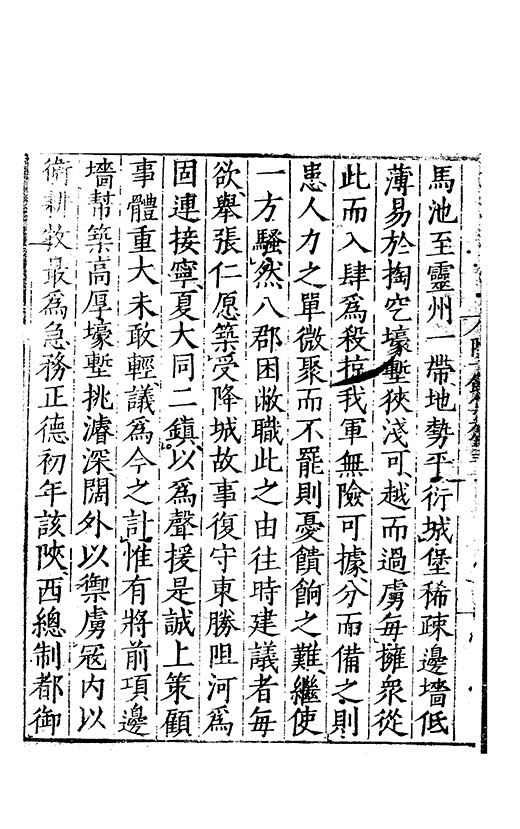 馬池至靈州一帶地勢平衍城堡稀疎邊墻低
薄易於掏空壕塹狹淺可越而過虜每擁衆從
此而入肆爲殺掠我軍無險可據分而備之則
患人力之單微聚而不罷則憂饋餉之難繼使
一方騷然八郡困敝職此之由往時建議者每
欲舉張仁愿築受降城故事復守東勝阻河爲
固連接寧夏大同二鎮以爲聲援是誠上策顧
事體重大未敢輕議爲今之計惟有將前項邊
墻幫築高厚壕塹挑濬深闊外以禦虜冦内以
衛耕牧最爲急務正德初年該陝西總制都御